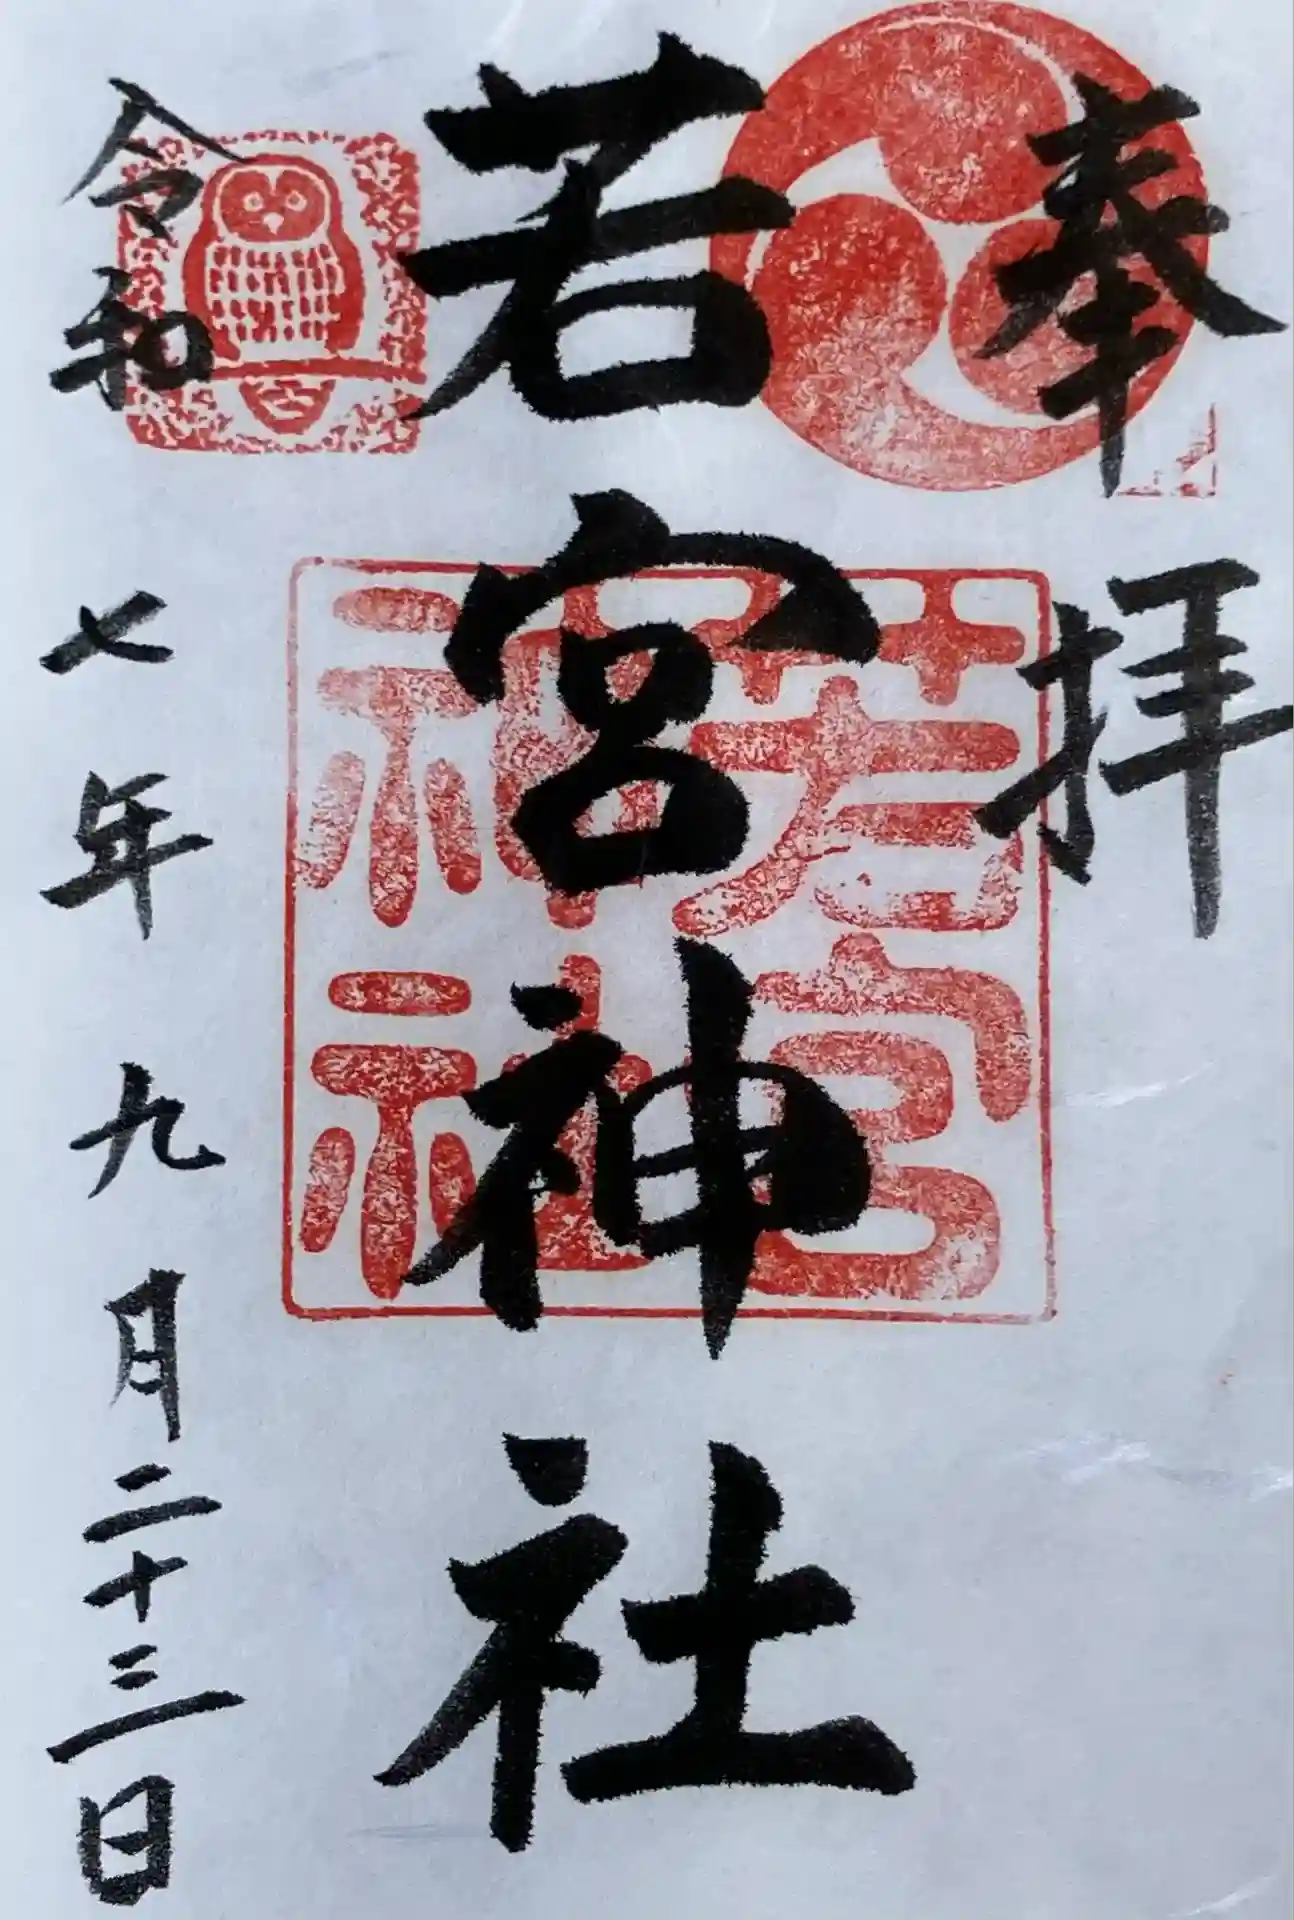 奉拝
若宮神社
若宮
神社
令和七年九月二十三日